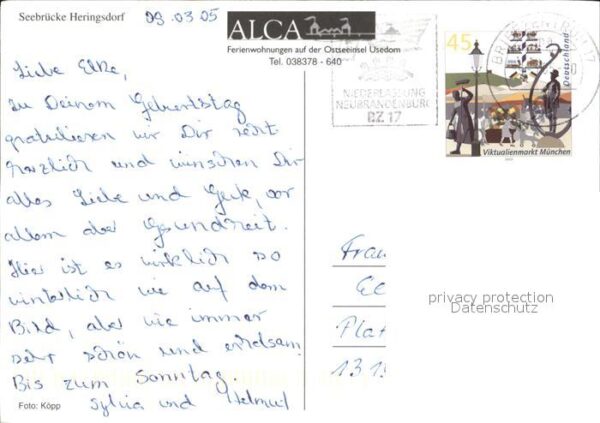 Seebrücke Heringsdorf
09.03.05
ALCA
Ferienwohnungen auf der Ostseeinsel Usedom
Tel. 038378 - 640
Liebe Elke,
zu Deinem Geburtstag
gratulieren wir Dir recht
herzlich und wünschen Dir
alles Liebe und Gute, vor
allem aber Gesundheit.
Hier ist es wirklich so
winterlich wie auf dem
Bild, aber wie immer
sehr schön und erholsam.
Bis zum Sonntag
Sylvia und Helmut
Foto: Köpp
NIEDERLASSUNG
NEUBRANDENBURG
BZ 17
45
Deutschland
Viktualienmarkt München
BRIEFZENTRUM 17
Frau
Plat
privacy protection
Datenschutz